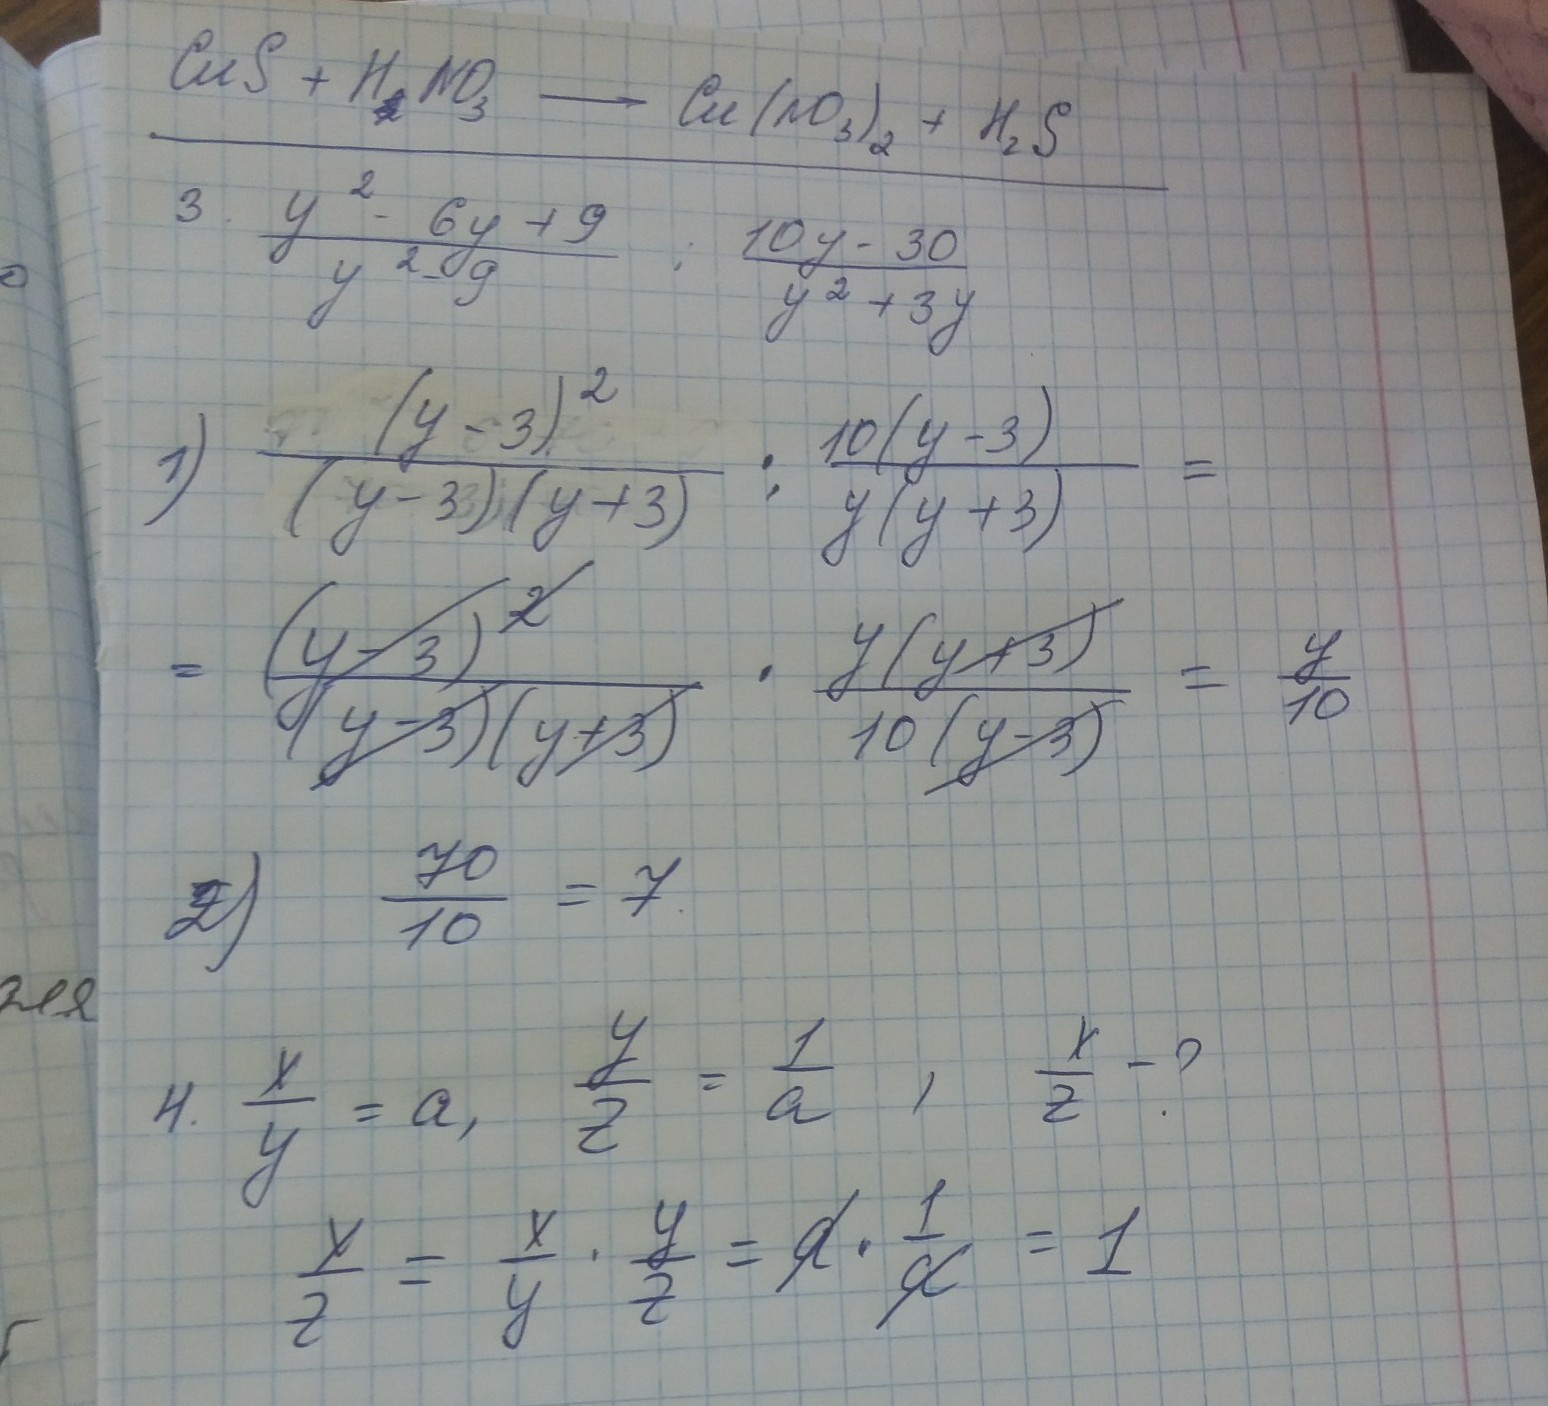 CuS + H₂NO₃ → Cu(NO₃)₂ + H₂S
3. (y² - 6y + 9)/(y² - 9) : (10y - 30)/(y² + 3y)
1) (y - 3)²/((y - 3)(y + 3)) : 10(y - 3)/(y(y + 3)) =
= (y - 3)²/((y - 3)(y + 3)) · y(y + 3)/(10(y - 3)) = y/10
2) 70/10 = 7.
4. x/y = a, y/z = 1/a , x/z - ?
x/z = x/y · y/z = a · 1/a = 1